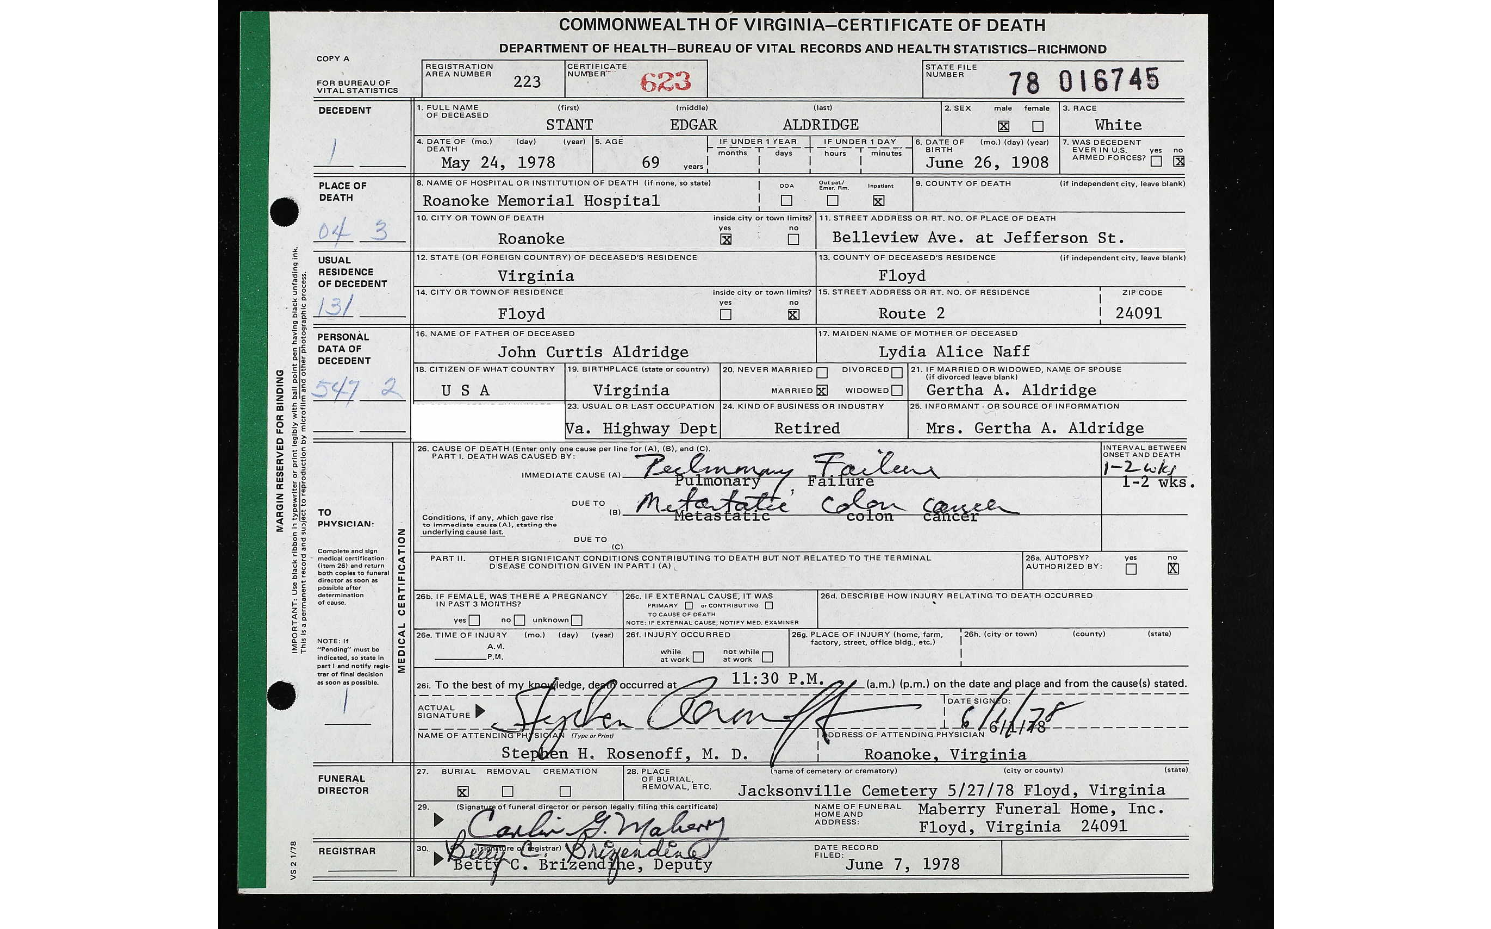 COMMONWEALTH OF VIRGINIA—CERTIFICATE OF DEATH
DEPARTMENT OF HEALTH—BUREAU OF VITAL RECORDS AND HEALTH STATISTICS—RICHMOND
COPY A
FOR BUREAU OF VITAL STATISTICS
REGISTRATION AREA NUMBER 223
CERTIFICATE NUMBER 623
STATE FILE NUMBER 78 016745
DECEDENT
1
1. FULL NAME OF DECEASED (first) (middle) (last)
STANT EDGAR ALDRIDGE
2. SEX male ☒ female ☐
3. RACE White
4. DATE OF DEATH (mo.) (day) (year) May 24, 1978
5. AGE 69 years
IF UNDER 1 YEAR months days
IF UNDER 1 DAY hours minutes
6. DATE OF BIRTH (mo.) (day) (year) June 26, 1908
7. WAS DECEDENT EVER IN U.S. ARMED FORCES? yes ☐ no ☒
PLACE OF DEATH
04 3
8. NAME OF HOSPITAL OR INSTITUTION OF DEATH (if none, so state)
Roanoke Memorial Hospital
DOA ☐ Out pat/ Emer. Rm. ☐ Inpatient ☒
9. COUNTY OF DEATH (if independent city, leave blank)
10. CITY OR TOWN OF DEATH inside city or town limits? yes ☒ no ☐
Roanoke
11. STREET ADDRESS OR RT. NO. OF PLACE OF DEATH
Belleview Ave. at Jefferson St.
USUAL RESIDENCE OF DECEDENT
131
12. STATE (OR FOREIGN COUNTRY) OF DECEASED'S RESIDENCE
Virginia
13. COUNTY OF DECEASED'S RESIDENCE (if independent city, leave blank)
Floyd
14. CITY OR TOWN OF RESIDENCE inside city or town limits? yes ☐ no ☒
Floyd
15. STREET ADDRESS OR RT. NO. OF RESIDENCE ZIP CODE
Route 2 24091
PERSONAL DATA OF DECEDENT
547 2
16. NAME OF FATHER OF DECEASED
John Curtis Aldridge
17. MAIDEN NAME OF MOTHER OF DECEASED
Lydia Alice Naff
18. CITIZEN OF WHAT COUNTRY
U S A
19. BIRTHPLACE (state or country)
Virginia
20. NEVER MARRIED ☐ DIVORCED ☐
MARRIED ☒ WIDOWED ☐
21. IF MARRIED OR WIDOWED, NAME OF SPOUSE (if divorced leave blank)
Gertha A. Aldridge
23. USUAL OR LAST OCCUPATION
Va. Highway Dept
24. KIND OF BUSINESS OR INDUSTRY
Retired
25. INFORMANT - OR SOURCE OF INFORMATION
Mrs. Gertha A. Aldridge
MARGIN RESERVED FOR BINDING
IMPORTANT: Use black ribbon in typewriter or print legibly with ball point pen having black unfading ink.
This is a permanent record and subject to reproduction by microfilm and other photographic process.
TO PHYSICIAN:
Complete and sign medical certification (item 26) and return both copies to funeral director as soon as possible after determination of cause.
NOTE: If "Pending" must be indicated, so state in part I and notify registrar of final decision as soon as possible.
1
MEDICAL CERTIFICATION
26. CAUSE OF DEATH (Enter only one cause per line for (A), (B), and (C).
PART I. DEATH WAS CAUSED BY:
INTERVAL BETWEEN ONSET AND DEATH
IMMEDIATE CAUSE (A) Pulmonary Failure 1-2 wks
Pulmonary Failure 1-2 wks.
DUE TO (B) Metastatic colon cancer
Metastatic colon cancer
Conditions, if any, which gave rise to immediate cause (A), stating the underlying cause last.
DUE TO (C)
PART II. OTHER SIGNIFICANT CONDITIONS CONTRIBUTING TO DEATH BUT NOT RELATED TO THE TERMINAL DISEASE CONDITION GIVEN IN PART I (A)
26a. AUTOPSY? AUTHORIZED BY: yes ☐ no ☒
26b. IF FEMALE, WAS THERE A PREGNANCY IN PAST 3 MONTHS?
yes ☐ no ☐ unknown ☐
26c. IF EXTERNAL CAUSE, IT WAS
PRIMARY ☐ or CONTRIBUTING ☐
TO CAUSE OF DEATH
NOTE: IF EXTERNAL CAUSE, NOTIFY MED. EXAMINER
26d. DESCRIBE HOW INJURY RELATING TO DEATH OCCURRED
26e. TIME OF INJURY (mo.) (day) (year)
A.M.
P.M.
26f. INJURY OCCURRED
while at work ☐ not while at work ☐
26g. PLACE OF INJURY (home, farm, factory, street, office bldg., etc.)
26h. (city or town) (county) (state)
26i. To the best of my knowledge, death occurred at 11:30 P.M. (a.m.) (p.m.) on the date and place and from the cause(s) stated.
ACTUAL SIGNATURE ▶ Stephen Rosenoff
DATE SIGNED: 6/1/78
6/1/78
NAME OF ATTENDING PHYSICIAN (Type or Print)
Stephen H. Rosenoff, M. D.
ADDRESS OF ATTENDING PHYSICIAN
Roanoke, Virginia
FUNERAL DIRECTOR
27. BURIAL ☒ REMOVAL ☐ CREMATION ☐
28. PLACE OF BURIAL, REMOVAL, ETC. (name of cemetery or crematory) (city or county) (state)
Jacksonville Cemetery 5/27/78 Floyd, Virginia
29. (Signature of funeral director or person legally filing this certificate)
▶ Carlin G. Maberry
NAME OF FUNERAL HOME AND ADDRESS:
Maberry Funeral Home, Inc.
Floyd, Virginia 24091
REGISTRAR
30. (signature of registrar)
▶ Betty C. Brizendine
Betty C. Brizendine, Deputy
DATE RECORD FILED:
June 7, 1978
VS 2 1/78